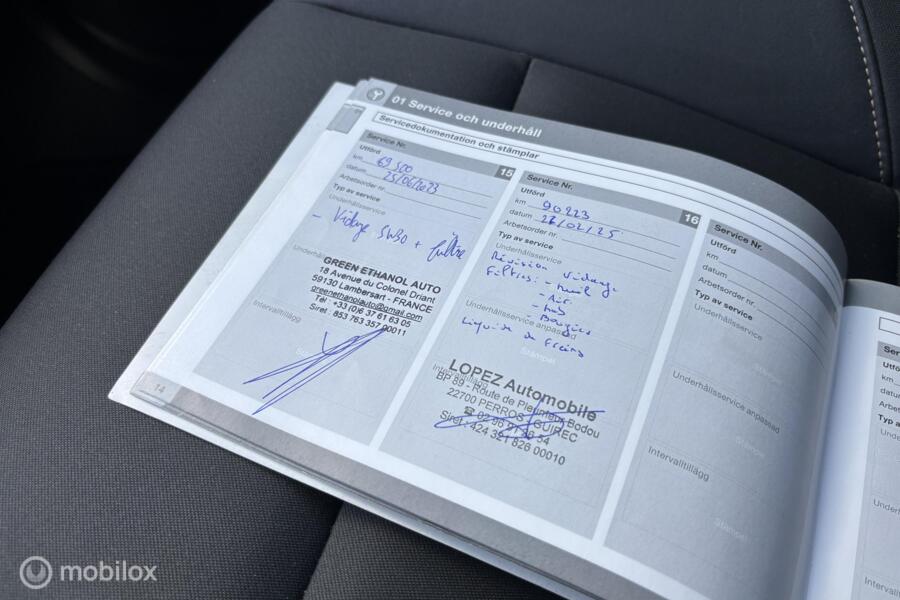 01 Service och underhåll
Servicedokumentation och stämplar
Service Nr. 15
Utförd
km 69 500
datum 25/06/2023
Arbetsorder nr.
Typ av service
Underhållsservice
- Vidange 5W30 + filtre
GREEN ETHANOL AUTO
18 Avenue du Colonel Driant
59130 Lambersart - FRANCE
greenethanolauto@gmail.com
Tél : +33 (0)6 37 61 63 05
Siret : 853 763 357 00011
Intervalltillägg
14
Service Nr. 16
Utförd
km 90223
datum
Arbetsorder nr.
Typ av service
Underhållsservice
Révision Vidange
Filtres: - huil
- Air
- hab
- Bougies
Underhållsservice anpassad
Liquide de freins
Stämpel
LOPEZ Automobile
Intervalltillägg
BP 89 - Route de Pleumeur Bodou
22700 PERROS GUIREC
Siret : 424 321 826 00010
Service Nr.
Utförd
km
datum
Arbetsorder nr.
Typ av service
Underhållsservice
Stämpel
Underhållsservice anpassad
Stämpel
Intervalltillägg
Stämpel
km
Typ
mobilox